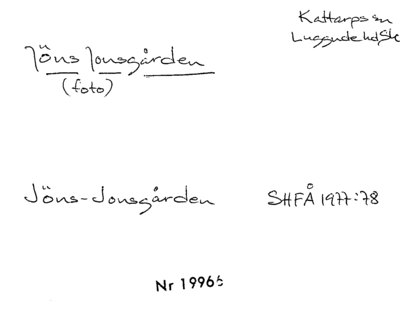 Kattarps sn
Luggude hd Sk
Jöns Jonsgården
(foto)
Jöns-Jonsgården SHFÅ 1977:78
Nr 19966